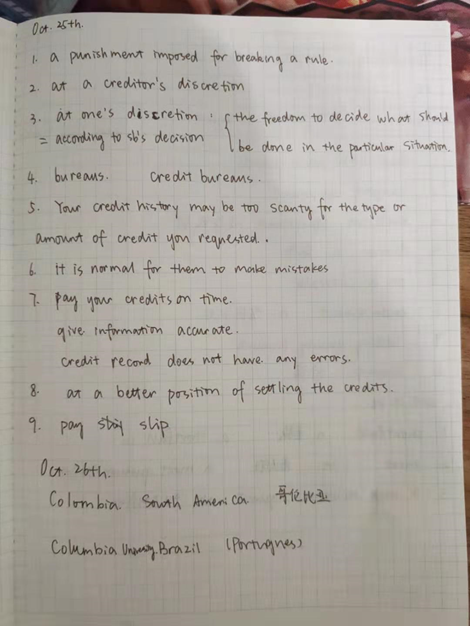 Oct. 25th.
1. a punishment imposed for breaking a rule.
2. at a creditor's discretion
3. at one's discretion : the freedom to decide what should
= according to sb's decision be done in the particular situation.
4. bureaus. credit bureaus.
5. Your credit history may be too scanty for the type or
amount of credit you requested.
6. it is normal for them to make mistakes
7. pay your credits on time.
give information accurate.
credit record does not have any errors.
8. at a better position of settling the credits.
9. pay slip
Oct. 26th.
Colombia. South America 哥伦比亚
Columbia Brazil